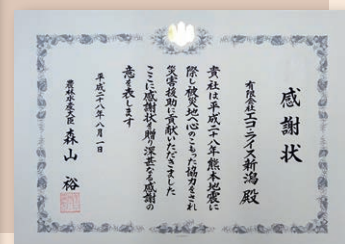 感謝状
有限会社エコ・ライス新潟殿
貴社は平成二十八年熊本地震に
際し被災地へ心のこもった協力をされ
災害援助に貢献いただきました
ここに感謝状を贈り深甚なる感謝の
意を表します
平成二十八年八月一日
農林水産大臣 森山 裕